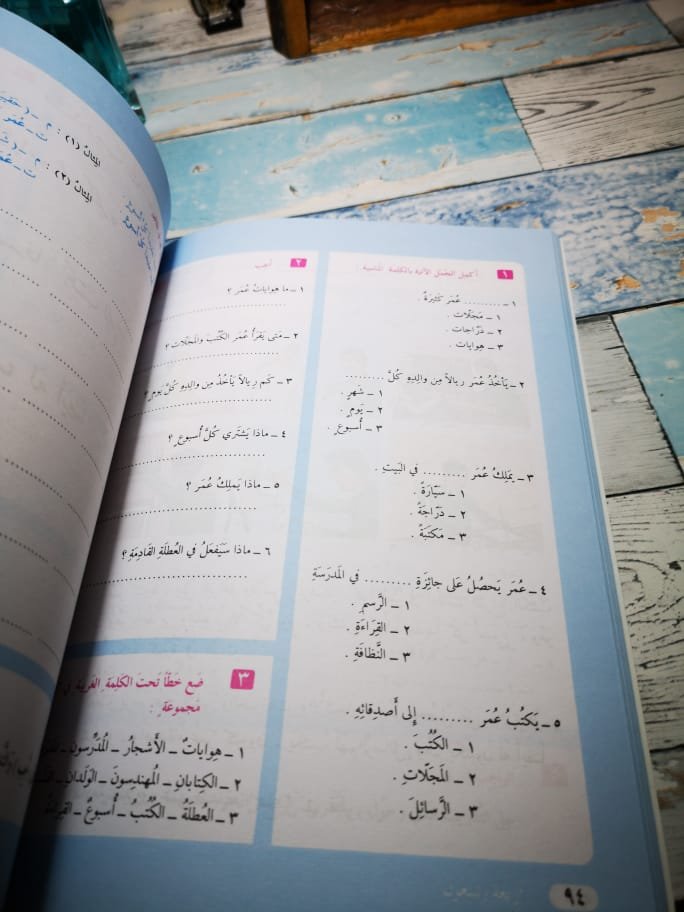 ١ أكمل الجمل الآتية بالكلمة المناسبة :
١ ـ .......... عُمَرَ كَثِيرَةٌ .
١ ـ مَجَلّات .
٢ ـ دَرّاجات .
٣ ـ هِوايات .
٢ ـ يَأخُذُ عُمَر ريالاً مِن والِدِهِ كُلَّ .........
١ ـ شَهرٍ .
٢ ـ يَومٍ .
٣ ـ أُسبوعٍ .
٣ ـ يَملِكُ عُمَر ......... في البَيتِ .
١ ـ سَيّارَةً .
٢ ـ دَرّاجَةً .
٣ ـ مَكتَبَةً .
٤ ـ عُمَر يَحصُلُ عَلى جائِزَةِ ......... في المَدرَسَةِ
١ ـ الرَّسمِ .
٢ ـ القِرَاءَةِ .
٣ ـ النَّظافَةِ .
٥ ـ يَكتُبُ عُمَر ......... إلى أَصدِقائِهِ .
١ ـ الكُتُبَ .
٢ ـ المَجَلّاتِ .
٣ ـ الرَّسائِلَ .
٢ أجب
١ ـ ما هِواياتُ عُمَر ؟
٢ ـ مَتى يَقرَأُ عُمَر الكُتُبَ والمَجَلّات ؟
٣ ـ كَم رِيالاً يَأخُذُ مِن والِدِهِ كُلَّ يَومٍ ؟
٤ ـ ماذا يَشتَري كُلَّ أُسبوعٍ ؟
٥ ـ ماذا يَملِكُ عُمَر ؟
٦ ـ ماذا سَيَفعَلُ في العُطلَةِ القَادِمَةِ ؟
٣ ضَع خَطّاً تَحتَ الكَلِمَةِ الغَريبَةِ في
مَجموعَةٍ :
١ ـ هِواياتٌ ـ الأَشجارُ ـ المُدَرِّسونَ ـ
٢ ـ الكِتابانِ ـ المُهَندِسونَ ـ الوَلَدانِ ـ
٣ ـ العُطلَةُ ـ الكُتُبُ ـ أُسبوعٌ ـ
المِثالُ (١) : م ـ
ت ـ عُمَر
المِثالُ (٢) : م ـ
ت ـ
٩٤